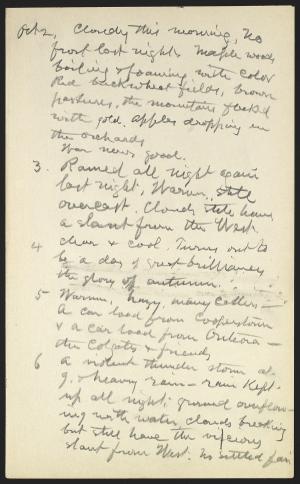 Oct 2, Cloudy this morning, No
frost last night. Maple woods
boiling & foaming with color
Red buckwheat fields, brown
pastures, the mountains flecked
with gold. apples dropping in
the orchards
War news good.
3. Rained all night again
last night, Warm, still
overcast. Clouds still have
a slant from the West.
4 clear & cool. Turns out to
be a day of great brilliancy
the glory of autumn.
5 Warm, hazy, many callers –
A car load from Cooperstown
& a car load from Onteora –
the Colgates & friends,
6 a violent thunder storm at
9, & heavy rain – rain kept
up all night; ground overflow-
ing with water, clouds breaking
but still have the vicious
slant from West. No settled fair